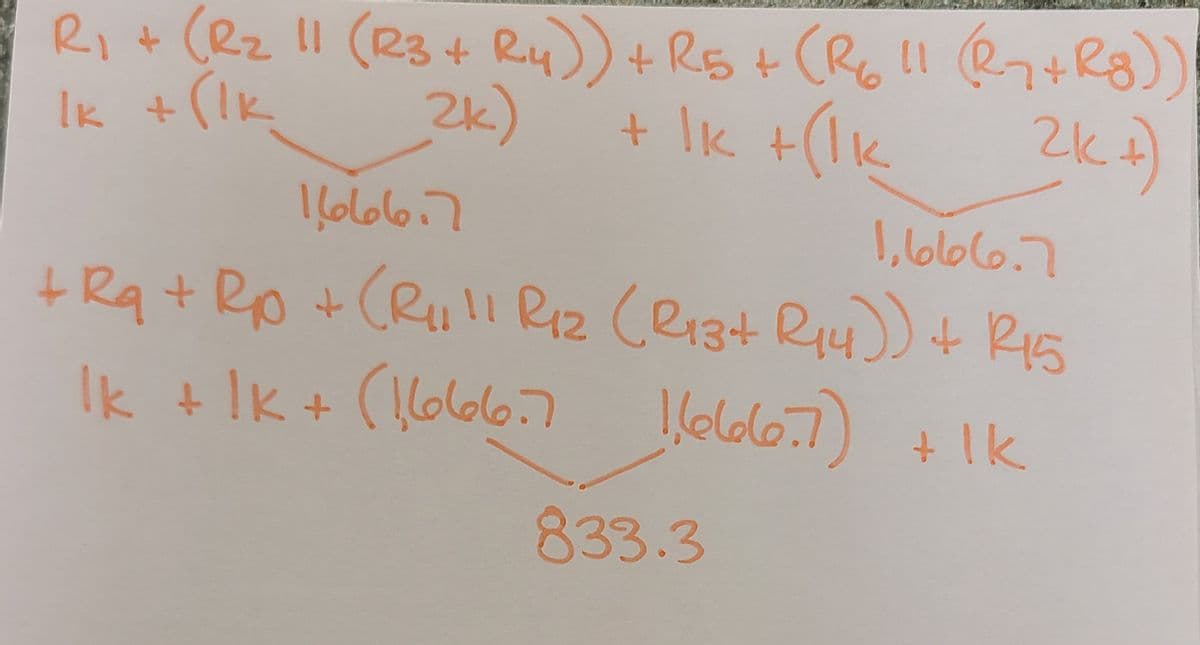 R1 + (R2 || (R3 + R4)) + R5 + (R6 || (R7 + R8))
1k + (1k 2k) + 1k + (1k 2k +)
1,666.7 1,666.7
+ R9 + R10 + (R11 || R12 (R13 + R14)) + R15
1k + 1k + (1,666.7 1,666.7) + 1k
833.3